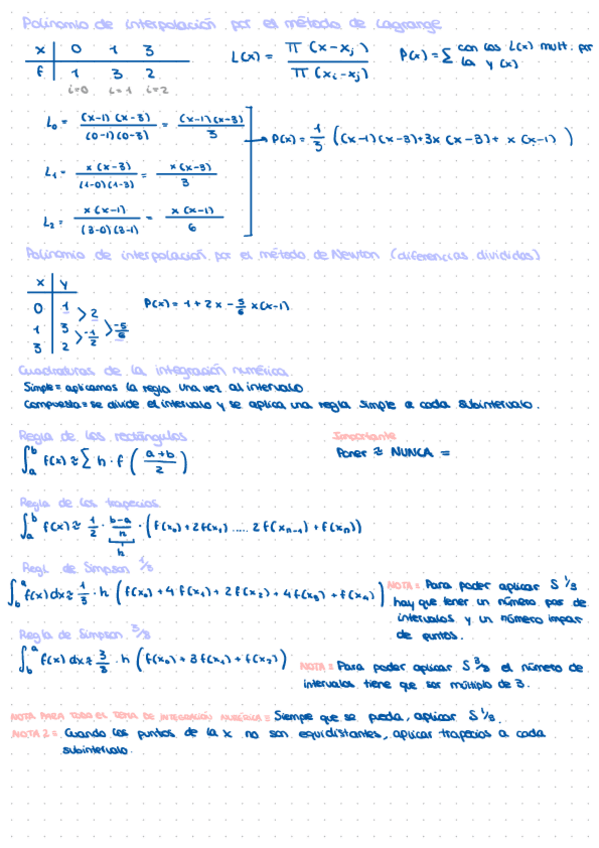 Polinomio de interpolación por el método de Lagrange
x 0 1 3
f 1 3 2
i=0 i=1 i=2
L(x) = π (x-xj) / π (xi-xj)
P(x) = Σ con los L(x) mult. por la y (x)
L0 = (x-1)(x-3) / (0-1)(0-3) = (x-1)(x-3) / 3
L1 = x(x-3) / (1-0)(1-3) = x(x-3) / 3
L2 = x(x-1) / (3-0)(3-1) = x(x-1) / 6
→ P(x) = 1/3 ((x-1)(x-3)+3x(x-3)+ x(x-1) )
Polinomio de interpolación por el método de Newton (diferencias divididas)
x y
0 1
1 3
3 2
> 2
> -1/2
> -5/6
P(x) = 1 + 2x - 5/6 x(x-1)
Cuadraturas de la integración numérica
Simple = aplicamos la regla una vez al intervalo
Compuesta = se divide el intervalo y se aplica una regla simple a cada subintervalo.
Regla de los rectángulos
∫ab f(x) ≈ Σ h · f (a+b / 2)
Importante
Poner ≈ NUNCA =
Regla de los trapecios
∫ab f(x) ≈ 1/2 · b-a/n · (f(x0) + 2f(x1) ..... 2f(xn-1) + f(xn))
h
Regl de Simpson 1/3
∫ba f(x) dx ≈ 1/3 · h (f(x0) + 4f(x1) + 2f(x2) + 4f(x3) + f(x4))
NOTA = Para poder aplicar S 1/3
hay que tener un número par de
intervalos y un número impar
de puntos.
Regla de Simpson 3/8
∫ba f(x) dx ≈ 3/3 · h (f(x0) + 3f(x1) + f(x2))
NOTA = Para poder aplicar S 3/8 el número de
intervalos tiene que ser múltiplo de 3.
NOTA PARA TODO EL TEMA DE INTEGRACIÓN NUMÉRICA = Siempre que se pueda, aplicar S 1/3.
NOTA 2 = Cuando los puntos de la x no son equidistantes, aplicar trapecios a cada
subintervalo.